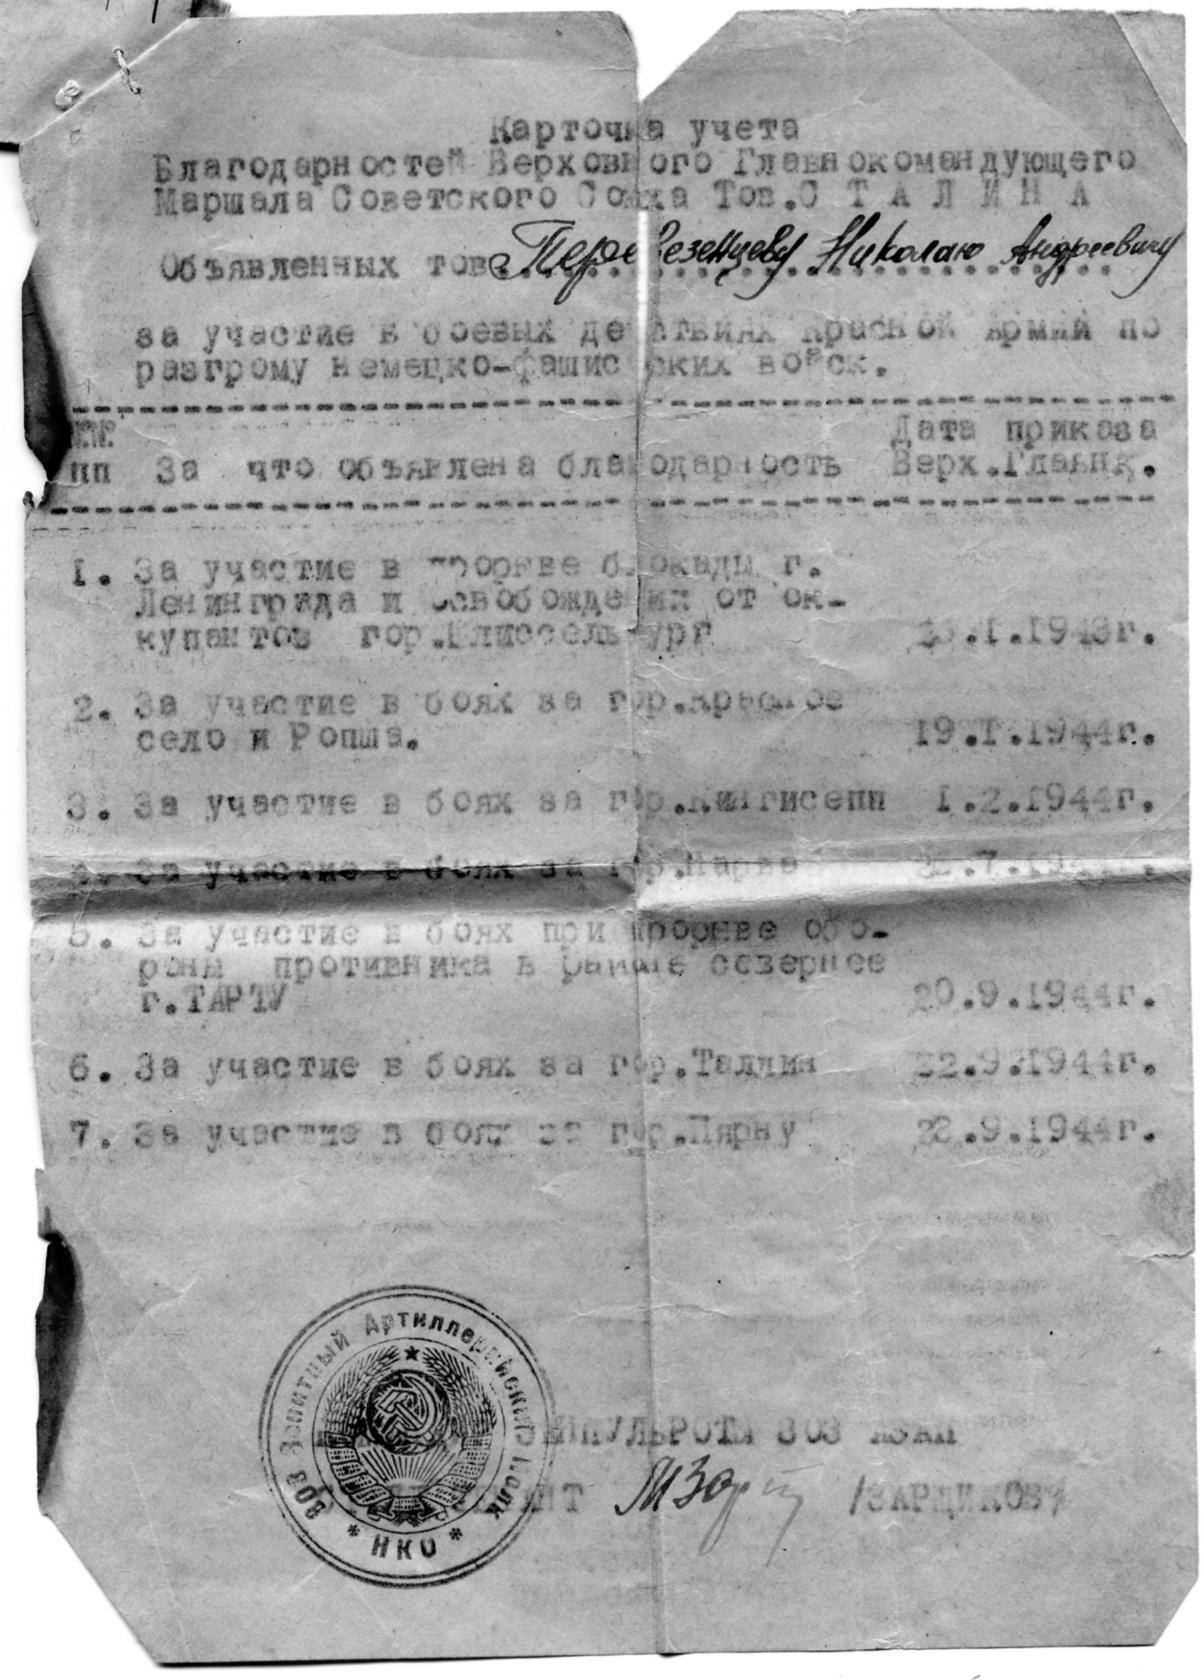 Карточка учета
Благодарностей Верховного Главнокомандующего
Маршала Советского Союза Тов.С Т А Л И Н А
Объявленных тов. Перевезенцеву Николаю Андреевичу
за участие в боевых действиях Красной Армии по
разгрому немецко-фашистских войск.
№№ Дата приказа
пп За что объявлена благодарность Верх.Главнк.
1. За участие в прорыве блокады г.
Ленинграда и освобождении от ок-
купантов гор.Шлиссельбург .1.1943г.
2. За участие в боях за гор.Красное
село и Ропша. 19.1.1944г.
3. За участие в боях за гор.Кингисепп 1.2.1944г.
4. За участие в боях за гор.Нарва .7.19
5. За участие в боях при прорыве обо-
роны противника в районе севернее
г.ТАРТУ 20.9.1944г.
6. За участие в боях за гор.Таллин 22.9.1944г.
7. За участие в боях за гор.Пярну 23.9.1944г.
803 Зенитный Артиллерийский Полк
* НКО *
803
/ЗАРЩИКОВ/